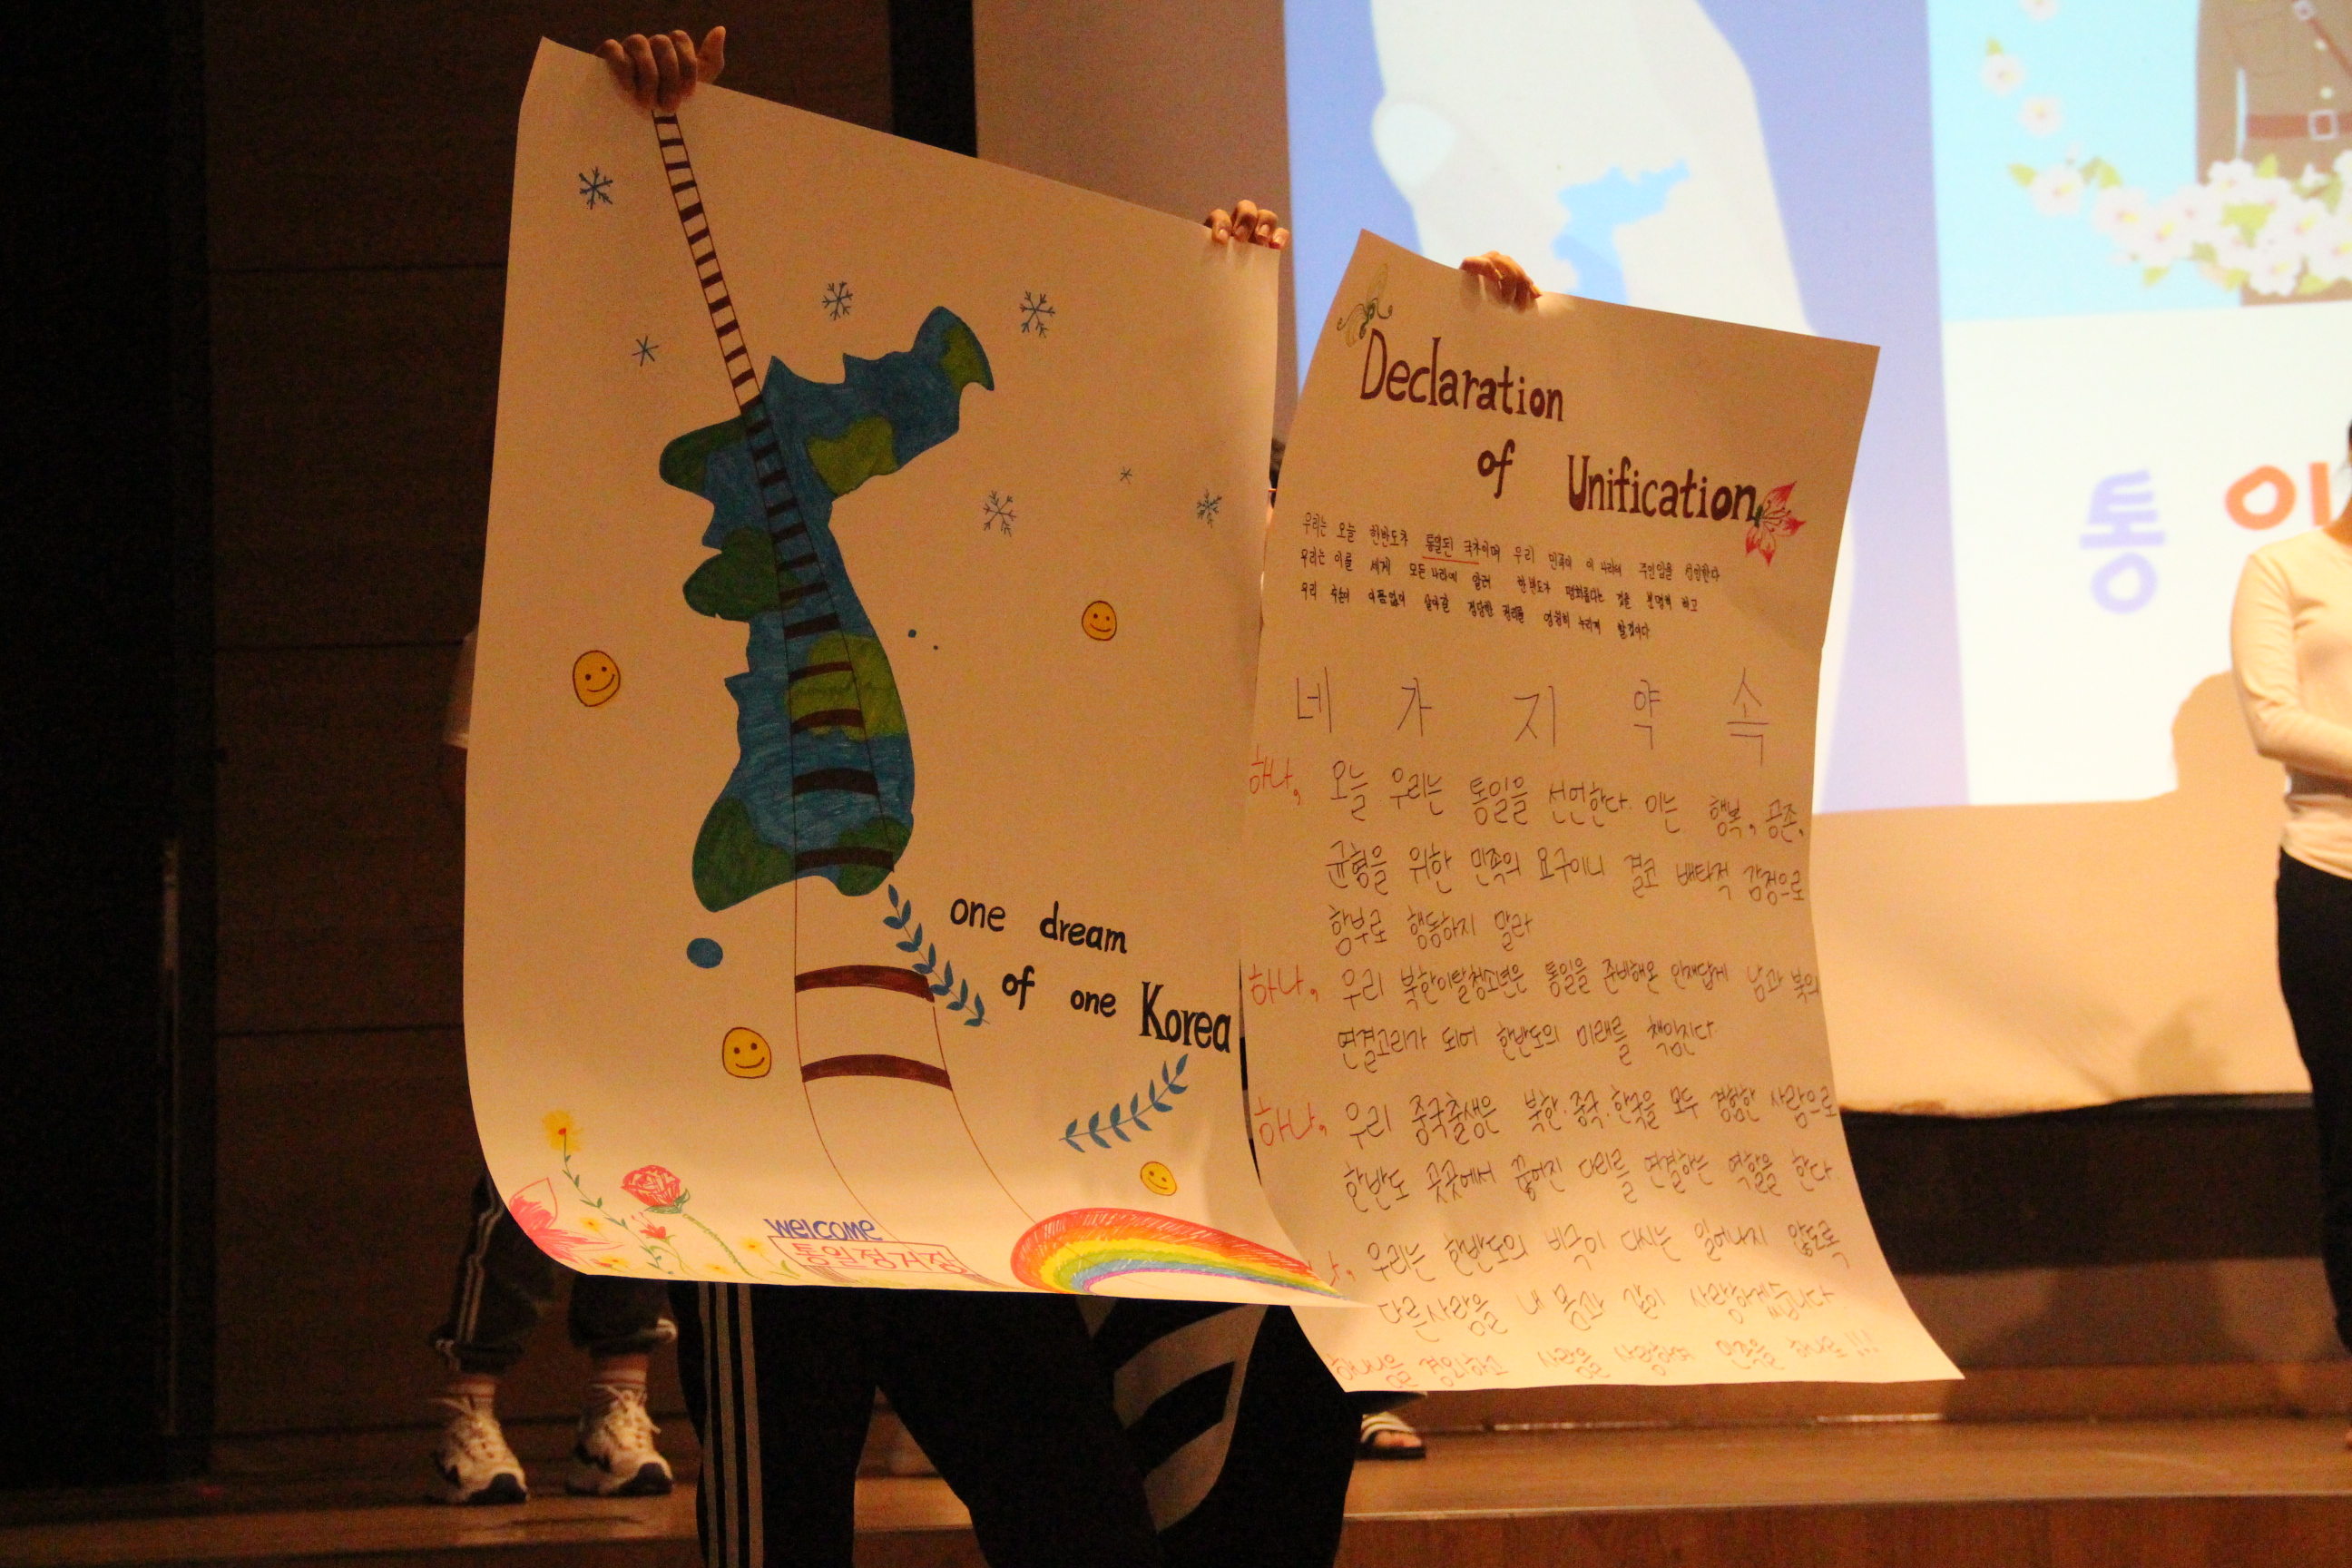 one dream
of one Korea
welcome
통일정거장
Declaration
of Unification
우리는 오늘 한반도가 통일된 국가이며 우리 민족이 이 나라에 주인임을 선언한다
우리는 이를 세계 모든 나라에 알려 한반도가 평화롭다는 것을 분명히 하고
우리 자손이 어려움없이 살아갈 정당한 권리를 영원히 누리게 할것이다
네 가 지 약 속
하나, 오늘 우리는 통일을 선언한다. 이는 행복, 공존,
균형을 위한 민족의 요구이니 결코 배타적 감정으로
함부로 행동하지 말라
하나, 우리 북한이탈청소년은 통일을 준비해온 인재답게 남과 북의
연결고리가 되어 한반도의 미래를 책임진다
하나, 우리 중국출생은 북한·중국·한국을 모두 경험한 사람으로
한반도 곳곳에서 끊어진 다리를 연결하는 역할을 한다.
우리는 한반도의 비극이 다시는 일어나지 않도록
다른사람을 내 몸과 같이 사랑하겠습니다
사람을 사랑하며 민족을 하나로!!!
통 이